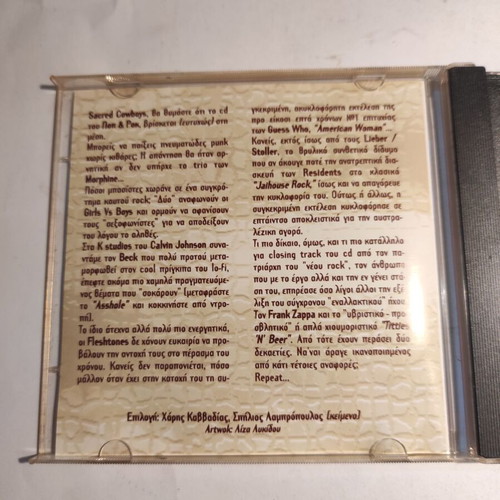 Sacred Cowboys, θα θαρούσε ότι το cd
του Ποπ & Ροκ, βρίσκεται (ευτυχώς) στο
μέση.
Μπορείς να παίξεις πνευματώδες punk
χωρίς κιθάρες; Η απάντηση θα ήταν αρ-
νητική αν δεν υπήρχε το trio των
Morphine...
Πόσοι μπασίστες χωράνε σε ένα συγκρό-
τημα καυτού rock; "Δύο" αναφωνούν οι
Girls Vs Boys και ορμούν να αφανίσουν
τους "σεξοφωνίστες" για να αποδείξουν
του λόγου το αληθές.
Στα K studios του Calvin Johnson συνα-
ντάμε τον Beck που πολύ προτού μετα-
μορφωθεί στον cool πρίγκιπα του lo-fi,
έπεφτε ακόμα πιο χαμηλά πραγματευόμε-
νος θέματα που "σοκάρουν" (μεταφράστε
το "Asshole" και κοκκινήστε από ντρο-
πή).
Το ίδιο άτεχνα αλλά πολύ πιο ενεργητικά,
οι Fleshtones δε χάνουν ευκαιρία να προ-
βάλουν την αντοχή τους στο πέρασμα του
χρόνου. Κανείς δεν παραπονιέται, πόσο
μάλλον όταν έχει στην κατοχή του τη συ-
γκεκριμένη, ακυκλοφόρητη εκτέλεση της
προ είκοσι επτά χρόνων Νο1 επιτυχίας
των Guess Who, "American Woman"...
Κανείς, εκτός ίσως από τους Lieber /
Stoller, το θρυλικό συνθετικό δίδυμο
που αν άκουγε ποτέ την ανατρεπτική δια-
σκευή των Residents στο κλασικό
"Jailhouse Rock," ίσως και να απαγόρευε
την κυκλοφορία του. Ούτως ή άλλως, η
συγκεκριμένη εκτέλεση κυκλοφόρησε σε
επτάιντσο αποκλειστικά για την αυστρα-
λέζικη αγορά.
Τι πιο δίκαιο, όμως, και τι πιο κατάλληλο
για closing track του cd από τον πα-
τριάρχη του "νέου rock", τον άνθρωπο
που με το έργο αλλά και την εν γένει στά-
ση του, επηρέασε όσο λίγοι άλλοι την εξέ-
λιξη του σύγχρονου "εναλλακτικού" ήχου.
Τον Frank Zappa και το "υβριστικό - προ-
σβλητικό" ή απλά χιουμοριστικό "Titties
'N' Beer". Από τότε έχουν περάσει δύο
δεκαετίες. Να ναι άραγε ικανοποιημένος
από κάτι τέτοιες αναφορές;
Repeat...
Επιλογή: Χάρης Καββαδίας, Σπήλιος Λαμπρόπουλος (κείμενα)
Artwok: Λίζα Λυκίδου